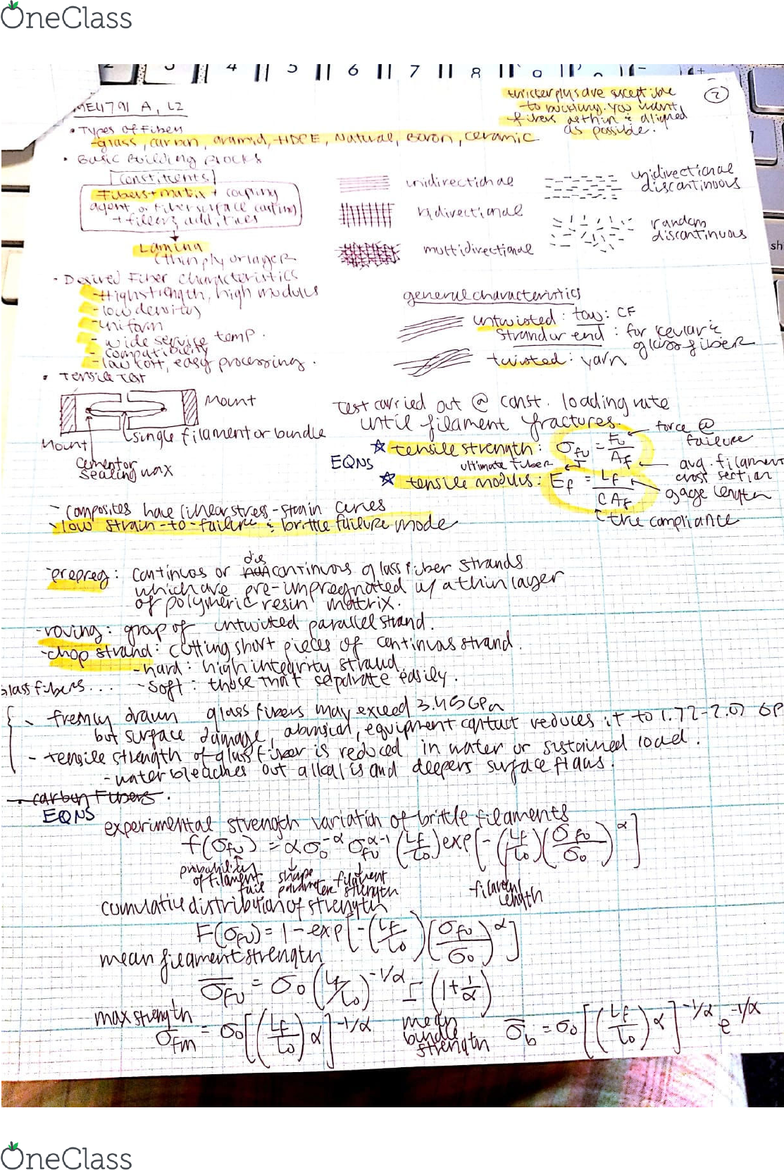 OneClass
4 5 6 7 8 9
ME4791 A, L2
②
to buckling. You want
fibers within & aligned
as possible.
• Types of Fiber
-glass, carbon, aramid, HDPE, Natural, Boron, ceramic
• Basic Building Blocks
Constituents
Fibers + matrix + coupling
agent or fiber surface coating
+ fillers, additives
Lamina
thin ply or layer
unidirectional
bidirectional
multidirectional
unidirectional
discontinous
random
discontinous
• Desired Fiber Characteristics
- High strength, high modulus
- low density
- uniform
- wide service temp.
- compatibility
- low cost, easy processing.
general characteristics
untwisted: tow: CF
strand or end: for kevlar &
glass fiber
twisted: yarn
• Tensile Test
Mount
Mount
single filament or bundle
Cement or
Sealing wax
Test carried out @ const. loading rate
until filament fractures.
EQNS
☆ tensile strength: σfu = Fu/Af
force @
failure
ultimate fiber
avg. filament
cross section
☆ tensile modulus: Ef = Lf/CAf
gage length
the compliance
- Composites have linear stress-strain curves
- low strain-to-failure & brittle failure mode
-prepreg: continuos or discontinuous glass fiber strands
which are pre-impregnated w/ a thin layer
of polymeric resin matrix.
-roving: group of untwisted parallel strand.
-chop strand: cutting short pieces of continuos strand.
-hard: high integrity strand
-soft: those that separate easily.
glass fibers...
- freshly drawn glass fibers may exceed 3.45 GPa
but surface damage, abrasion, equipment contact reduces it to 1.72-2.07 GP
- tensile strength of glass fiber is reduced in water or sustained load.
-water bleaches out alkalis and deepens surface flaws.
- carbon fibers.
EQNS
experimental strength variation of brittle filaments
f(σfu) = ασo^-α σfu^α-1 (Lf/Lo) exp[-(Lf/Lo)(σfu/σo)^α]
probability
of filament
fail
shape
parameter
filament
strength
-filament
length
cumulative distribution of strength
F(σfu) = 1-exp[-(Lf/Lo)(σfu/σo)^α]
mean filament strength
σ̄fu = σo(Lf/Lo)^-1/α Γ(1+1/α)
max strength
σfm = σo[(Lf/Lo)α]^-1/α
mean
bundle
strength
σ̄b = σo[(Lf/Lo)α]^-1/α e^-1/α
OneClass